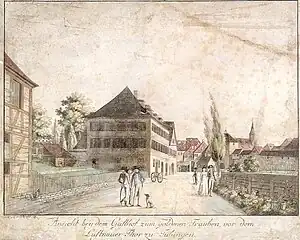 Ansicht bey dem Gasthof zum goldenen Trauben vor dem
Lustnauer Thor zu Tübingen.